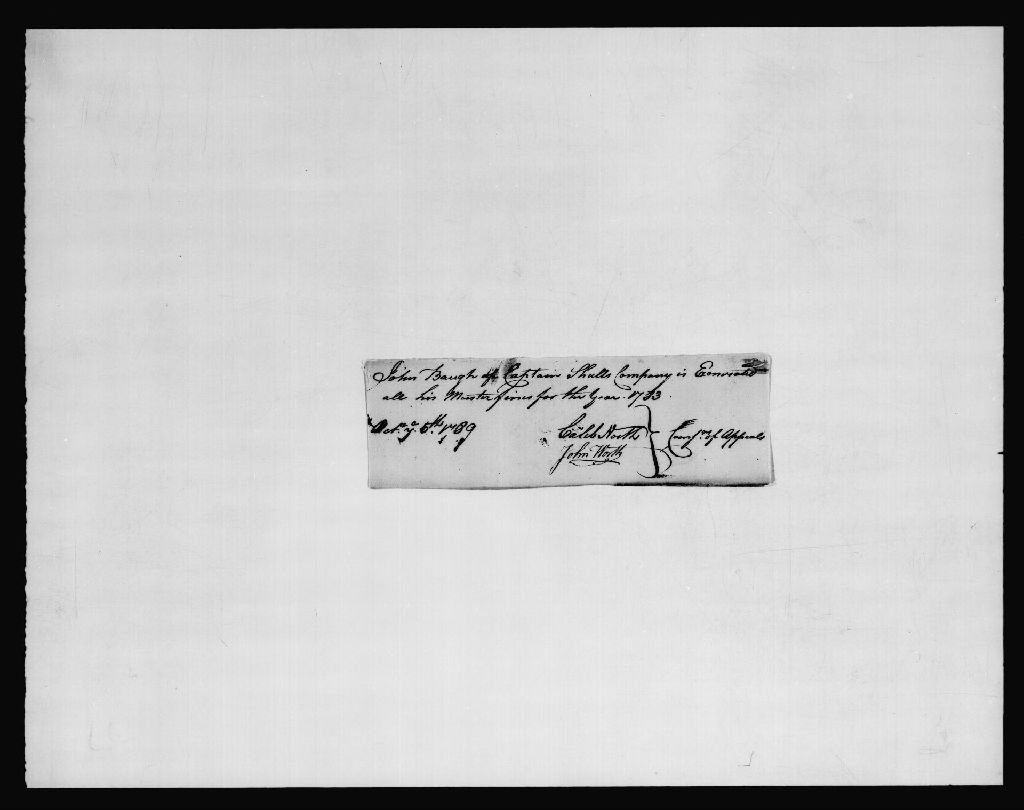 John Baugh of Captain Shulls Company is Exonerated
all his Muster fines for the Year 1783.
Octr. ye. 5th. 1789
Caleb North
John North
Comrs. of Appeals